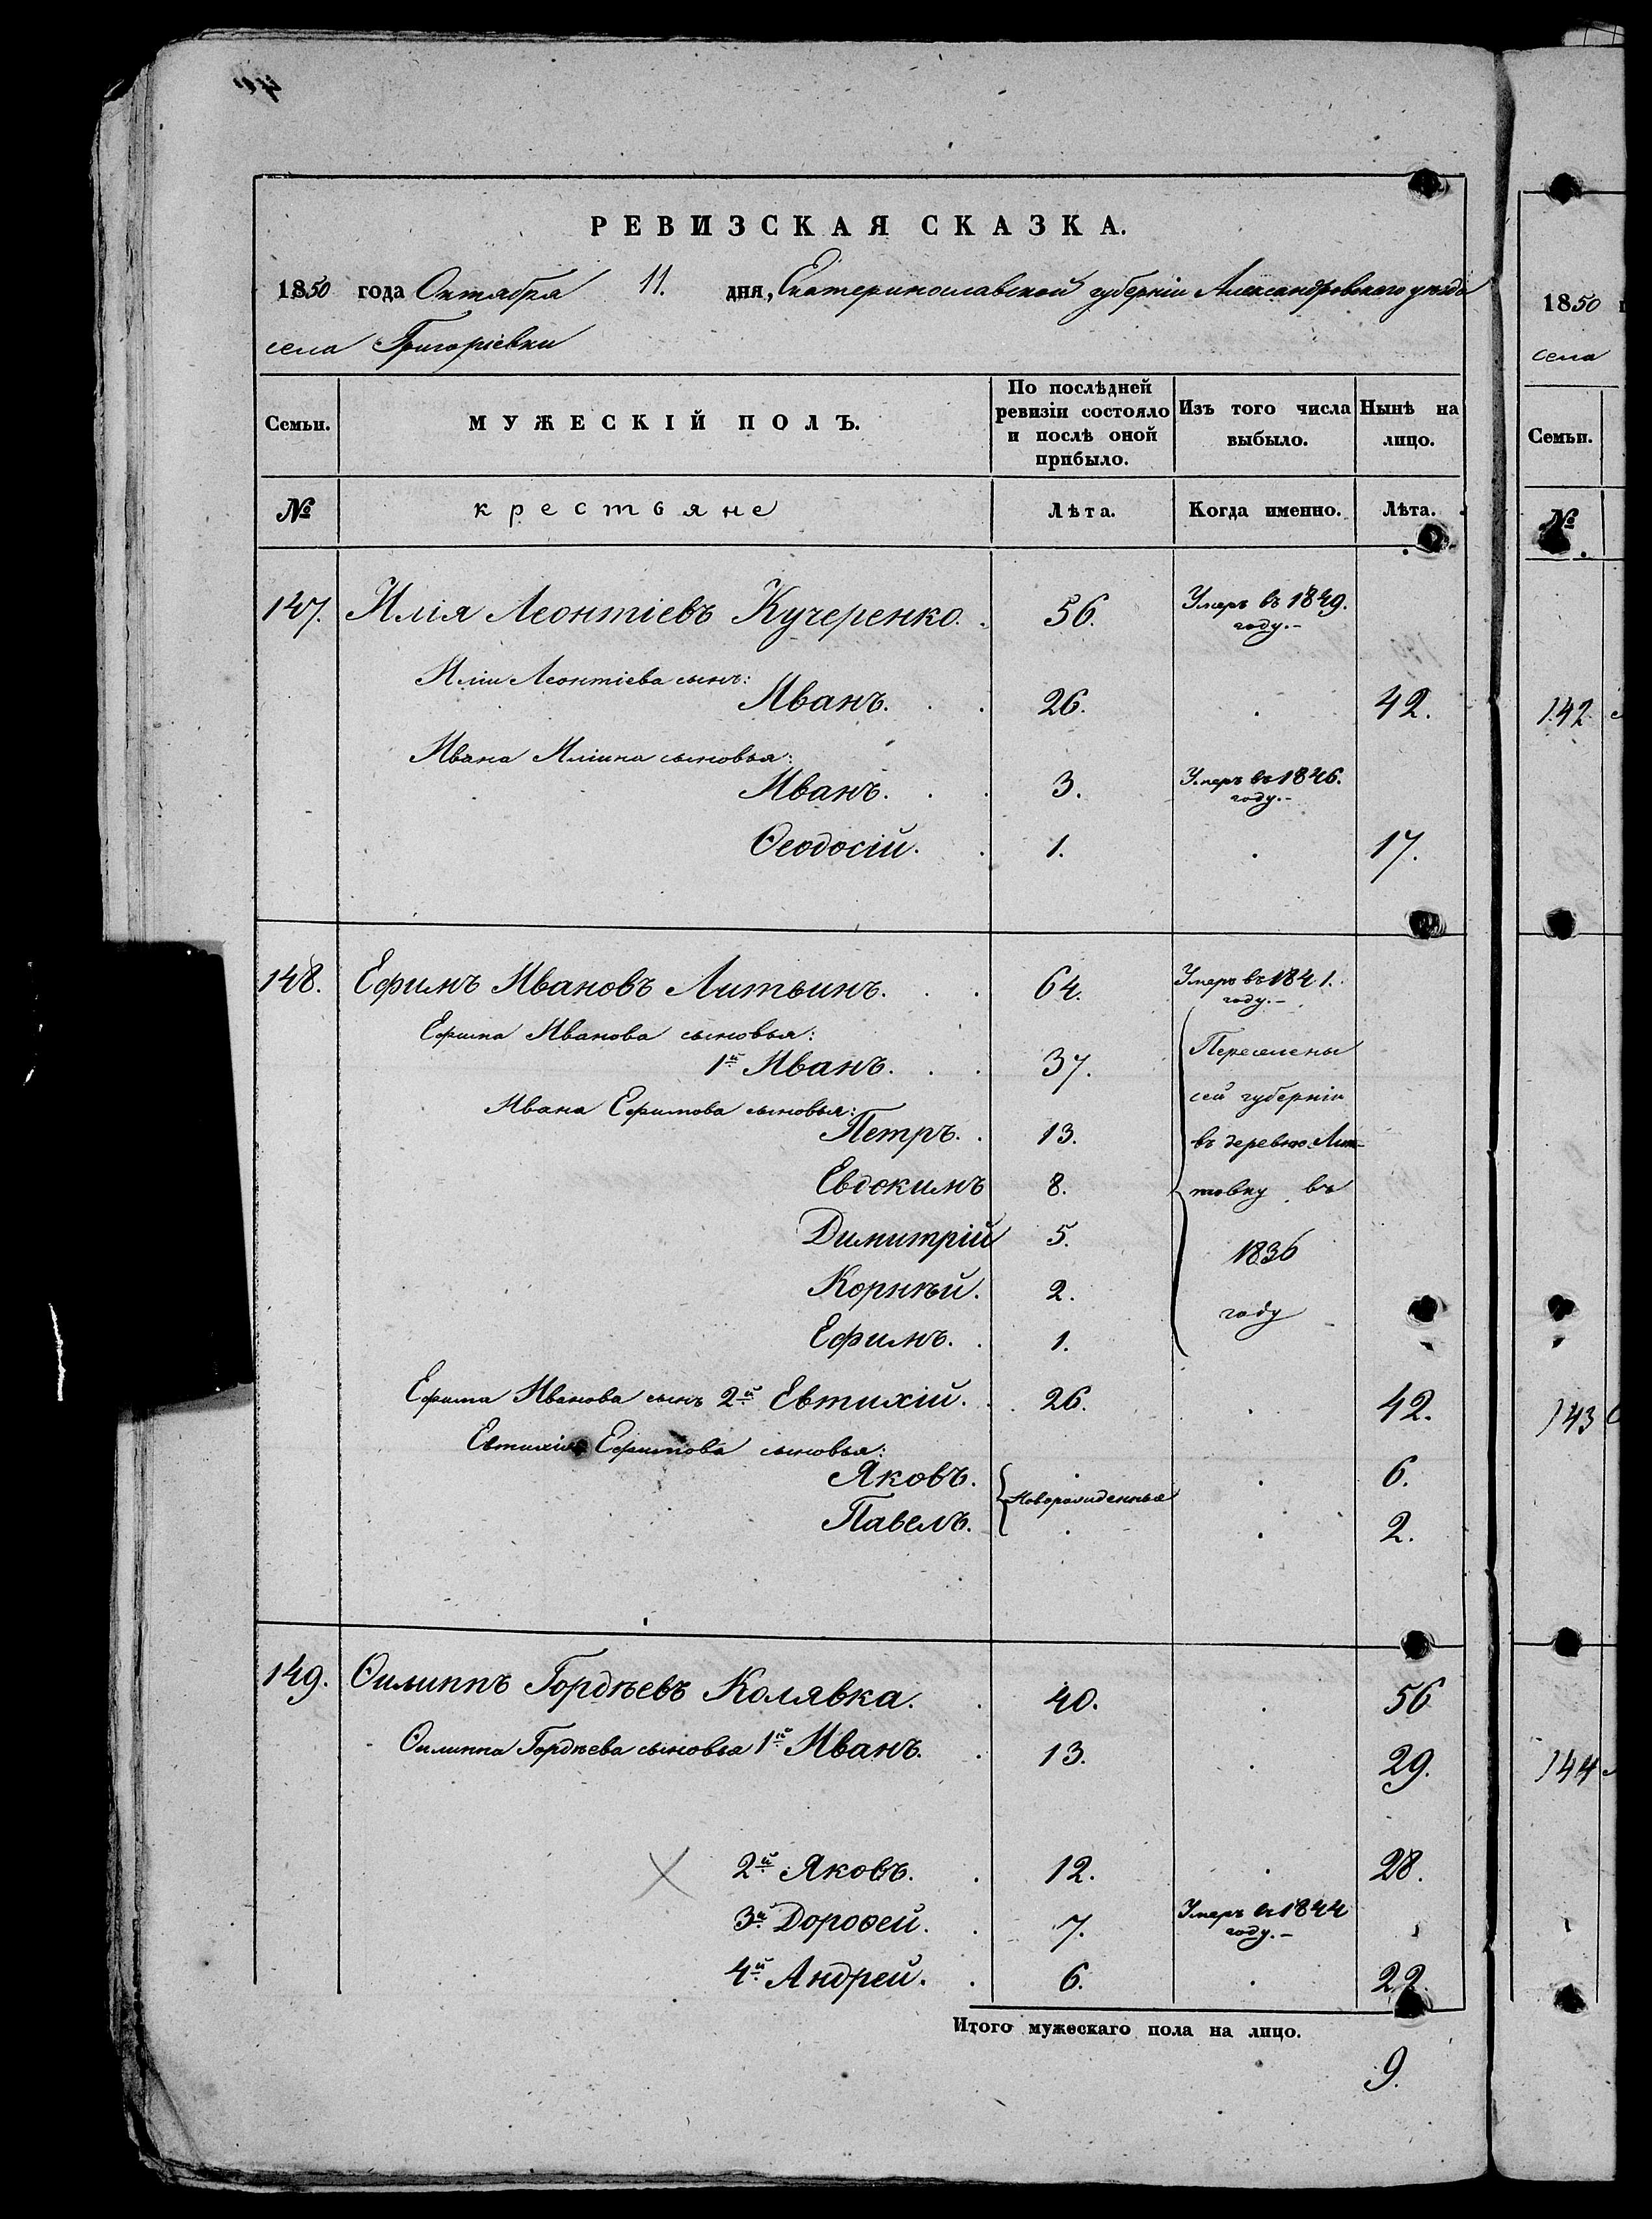 РЕВИЗСКАЯ СКАЗКА.
1850 года Октября 11. дня, Екатеринославской губерніи Александровскаго уезда
села Григоріевки
Семьи. МУЖЕСКІЙ ПОЛЪ. По послѣдней ревизіи состояло и послѣ оной прибыло. Изъ того числа выбыло. Нынѣ на лицо.
№ крестьяне Лѣта. Когда именно. Лѣта.
147. Илія Леонтіевъ Кучеренко. 56. Умеръ въ 1849. году.-
Иліи Леонтіева сынъ:
Иванъ. 26. 42.
Ивана Иліина сыновья:
Иванъ. 3. Умеръ въ 1846. году.-
Ѳеодосій. 1. 17.
148. Ефимъ Ивановъ Литвинъ. 64. Умеръ въ 1841. году.-
Ефима Иванова сыновья:
1й Иванъ. 37. Переселены
Ивана Ефимова сыновья: сей губерніи
Петръ. 13. въ деревню Лит-
Евдокимъ 8. товку въ
Димитрій 5. 1836
Корнѣй. 2. году
Ефимъ. 1.
Ефима Иванова сынъ 2й Евтихій. 26. 42.
Евтихія Ефимова сыновья:
Яковъ. Новорожденные 6.
Павелъ. 2.
149. Ѳилиппъ Гордѣевъ Колявка. 40. 56
Ѳилиппа Гордѣева сыновья 1й Иванъ. 13. 29.
2й Яковъ. 12. 28.
3й Дороѳей. 7. Умеръ въ 1844 году.-
4й Андрей. 6. 22.
Итого мужескаго пола на лицо.
9.
1850
села
Семьи.
№
142
143
144